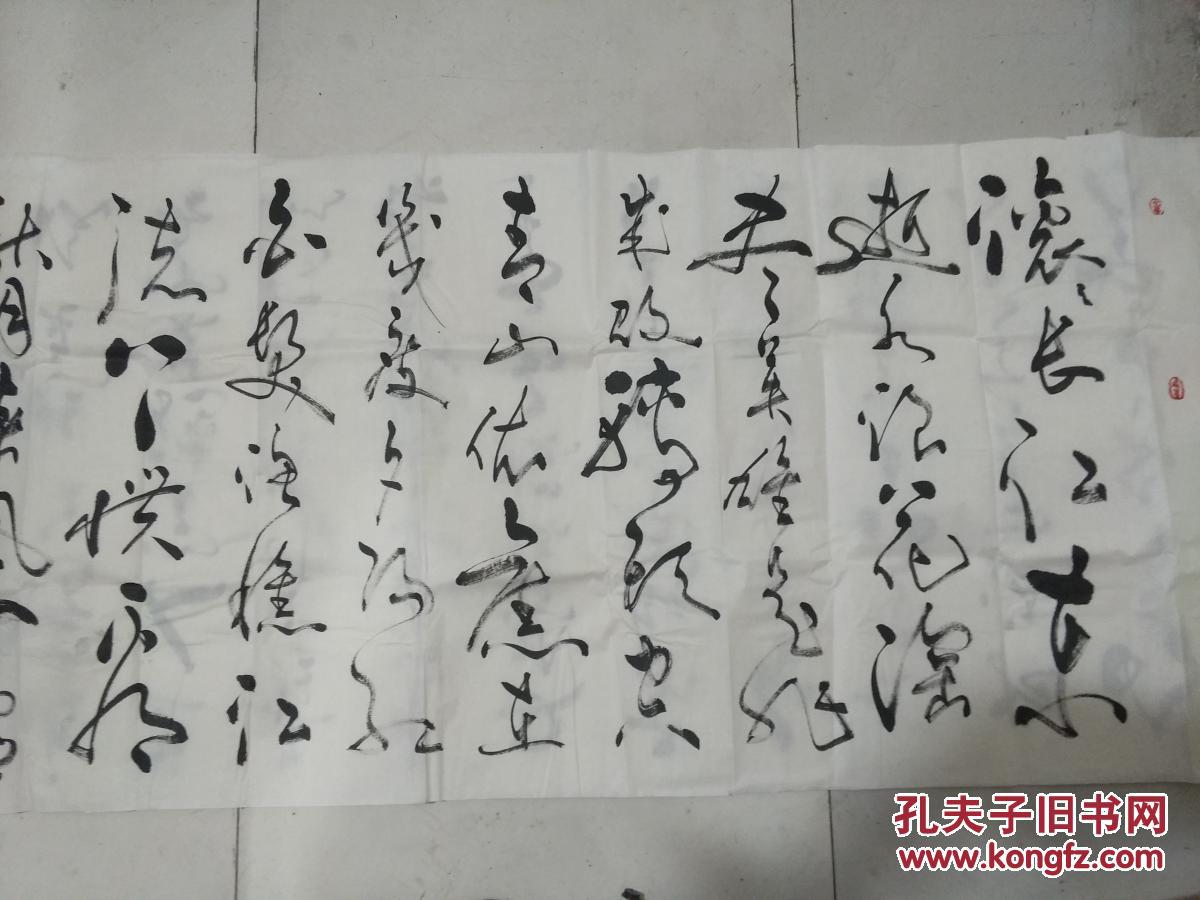 滚々长江东
逝水浪花淘
尽英雄是非
成败转头空
青山依旧在
几度夕阳红
白髮渔樵江
渚上惯看
秋月春风一
孔夫子旧书网
www.kongfz.com